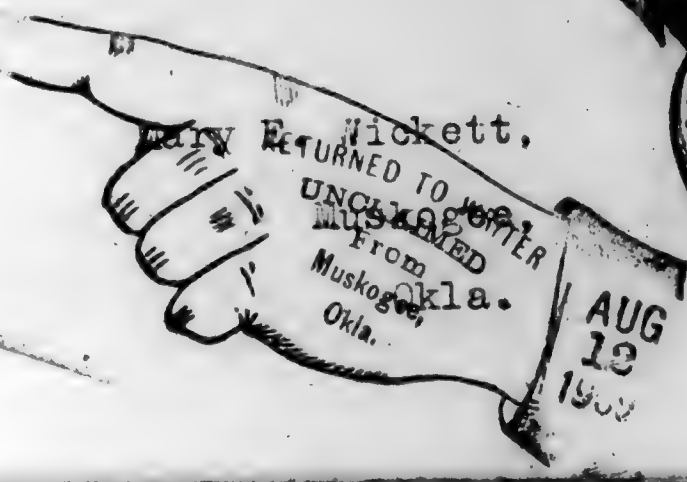 Mary E. Wickett,
Muskogee,
Okla.
RETURNED TO WRITER
UNCLAIMED
From
Muskogee,
Okla.
AUG
12